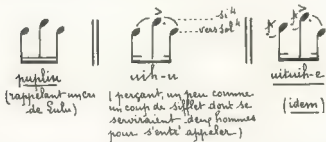 si⁴
vers sol⁴
pupliu
uih-u
uituih-e
(rappelant un cri
de Lulu)
(perçant, un peu comme
un coup de sifflet dont se
serviraient deux hommes
pour s'entr'appeler)
(idem)